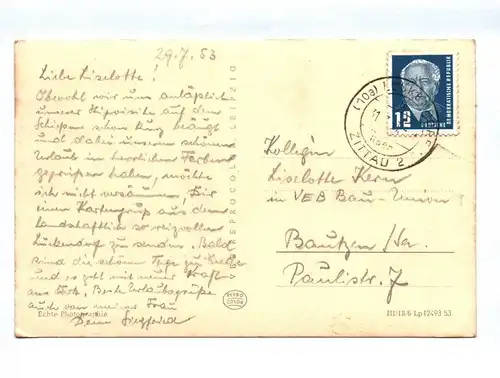 29.7.53
Liebe Liselotte!
Obwohl wir uns anläßlich
unserer Stipvisite auf dem
Schiff schon kurz
und dabei unseren schönen
Urlaub in herrlichen
haben, möchte
ich nicht versäumen, Dir
einen Kartengruß aus dem
landschaftlich so reizvollen
Lückendorf zu senden. Bald
sind die schönen Tage zu Ende
und es geht mit neuer Kraft
ans Werk. Beste Urlaubsgrüße
auch von meiner Frau
Dein Siegfried
Echte Photographie
(10a)
ZITTAU 2
12
DEUTSCHE
DEMOKRATISCHE REPUBLIK
Kollegin
Liselotte Kern
in VEB Bau-Union
Bautzen/Sa.
Paulistr. 7
III/18/6 Lp 12493 53